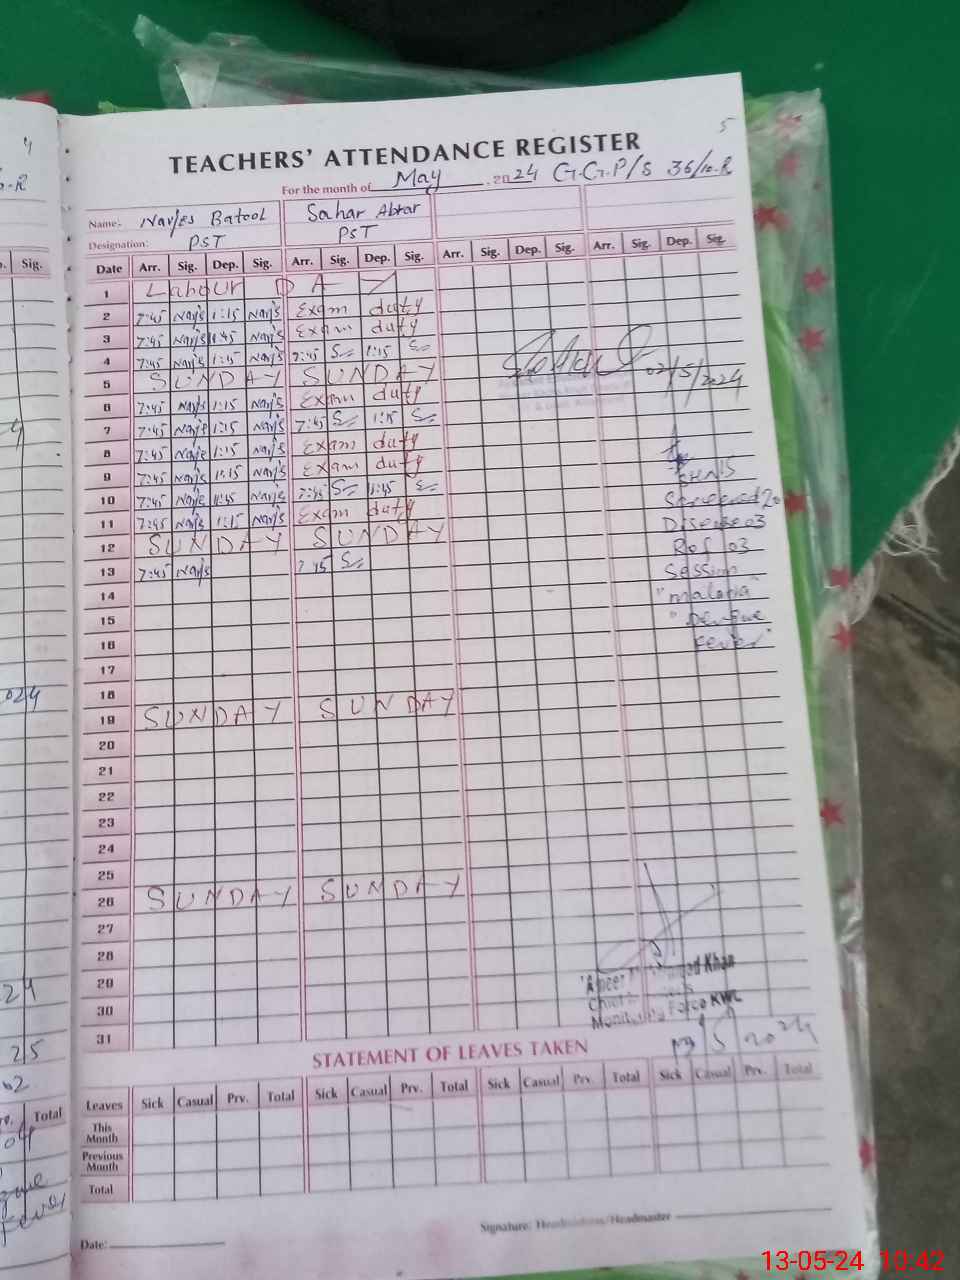 5
TEACHERS' ATTENDANCE REGISTER
For the month of May, 2024 G.G.P/S 36/10.R
Name:- Narjes Batool Sahar Abrar
Designation: PST PST
Date Arr. Sig. Dep. Sig. Arr. Sig. Dep. Sig. Arr. Sig. Dep. Sig. Arr. Sig. Dep. Sig.
1 Labour DAY
2 7:45 Narjis 1:15 Narjis Exam duty
3 7:45 Narjis 1:45 Narjis Exam duty
4 7:45 Narjis 1:15 Narjis 7:45 1:15
5 SUNDAY SUNDAY 02/5/2024
6 7:45 Narjis 1:15 Narjis Exam duty
7 7:45 Narjis 1:15 Narjis 7:45 1:15
8 7:45 Narjis 1:15 Narjis Exam duty
9 7:45 Narjis 1:15 Narjis Exam duty
SHNS
10 7:45 Narjis 1:45 Narjis 7:45 1:45
Screened 20
11 7:45 Narjis 1:15 Narjis Exam duty
Disease 03
12 SUNDAY SUNDAY
Ref 03
13 7:45 Narjis 7:45
Session
14
"malaria"
15
"Dengue
16
fever"
17
18
19 SUNDAY SUNDAY
20
21
22
23
24
25
26 SUNDAY SUNDAY
27
28
29
Khan
30
Chief
Monitoring Force KWL
31
13/5/2024
STATEMENT OF LEAVES TAKEN
Leaves Sick Casual Prv. Total Sick Casual Prv. Total Sick Casual Prv. Total Sick Casual Prv. Total
This Month
Previous Month
Total
Signature: Headmistress/Headmaster
Date:
13-05-24 10:42